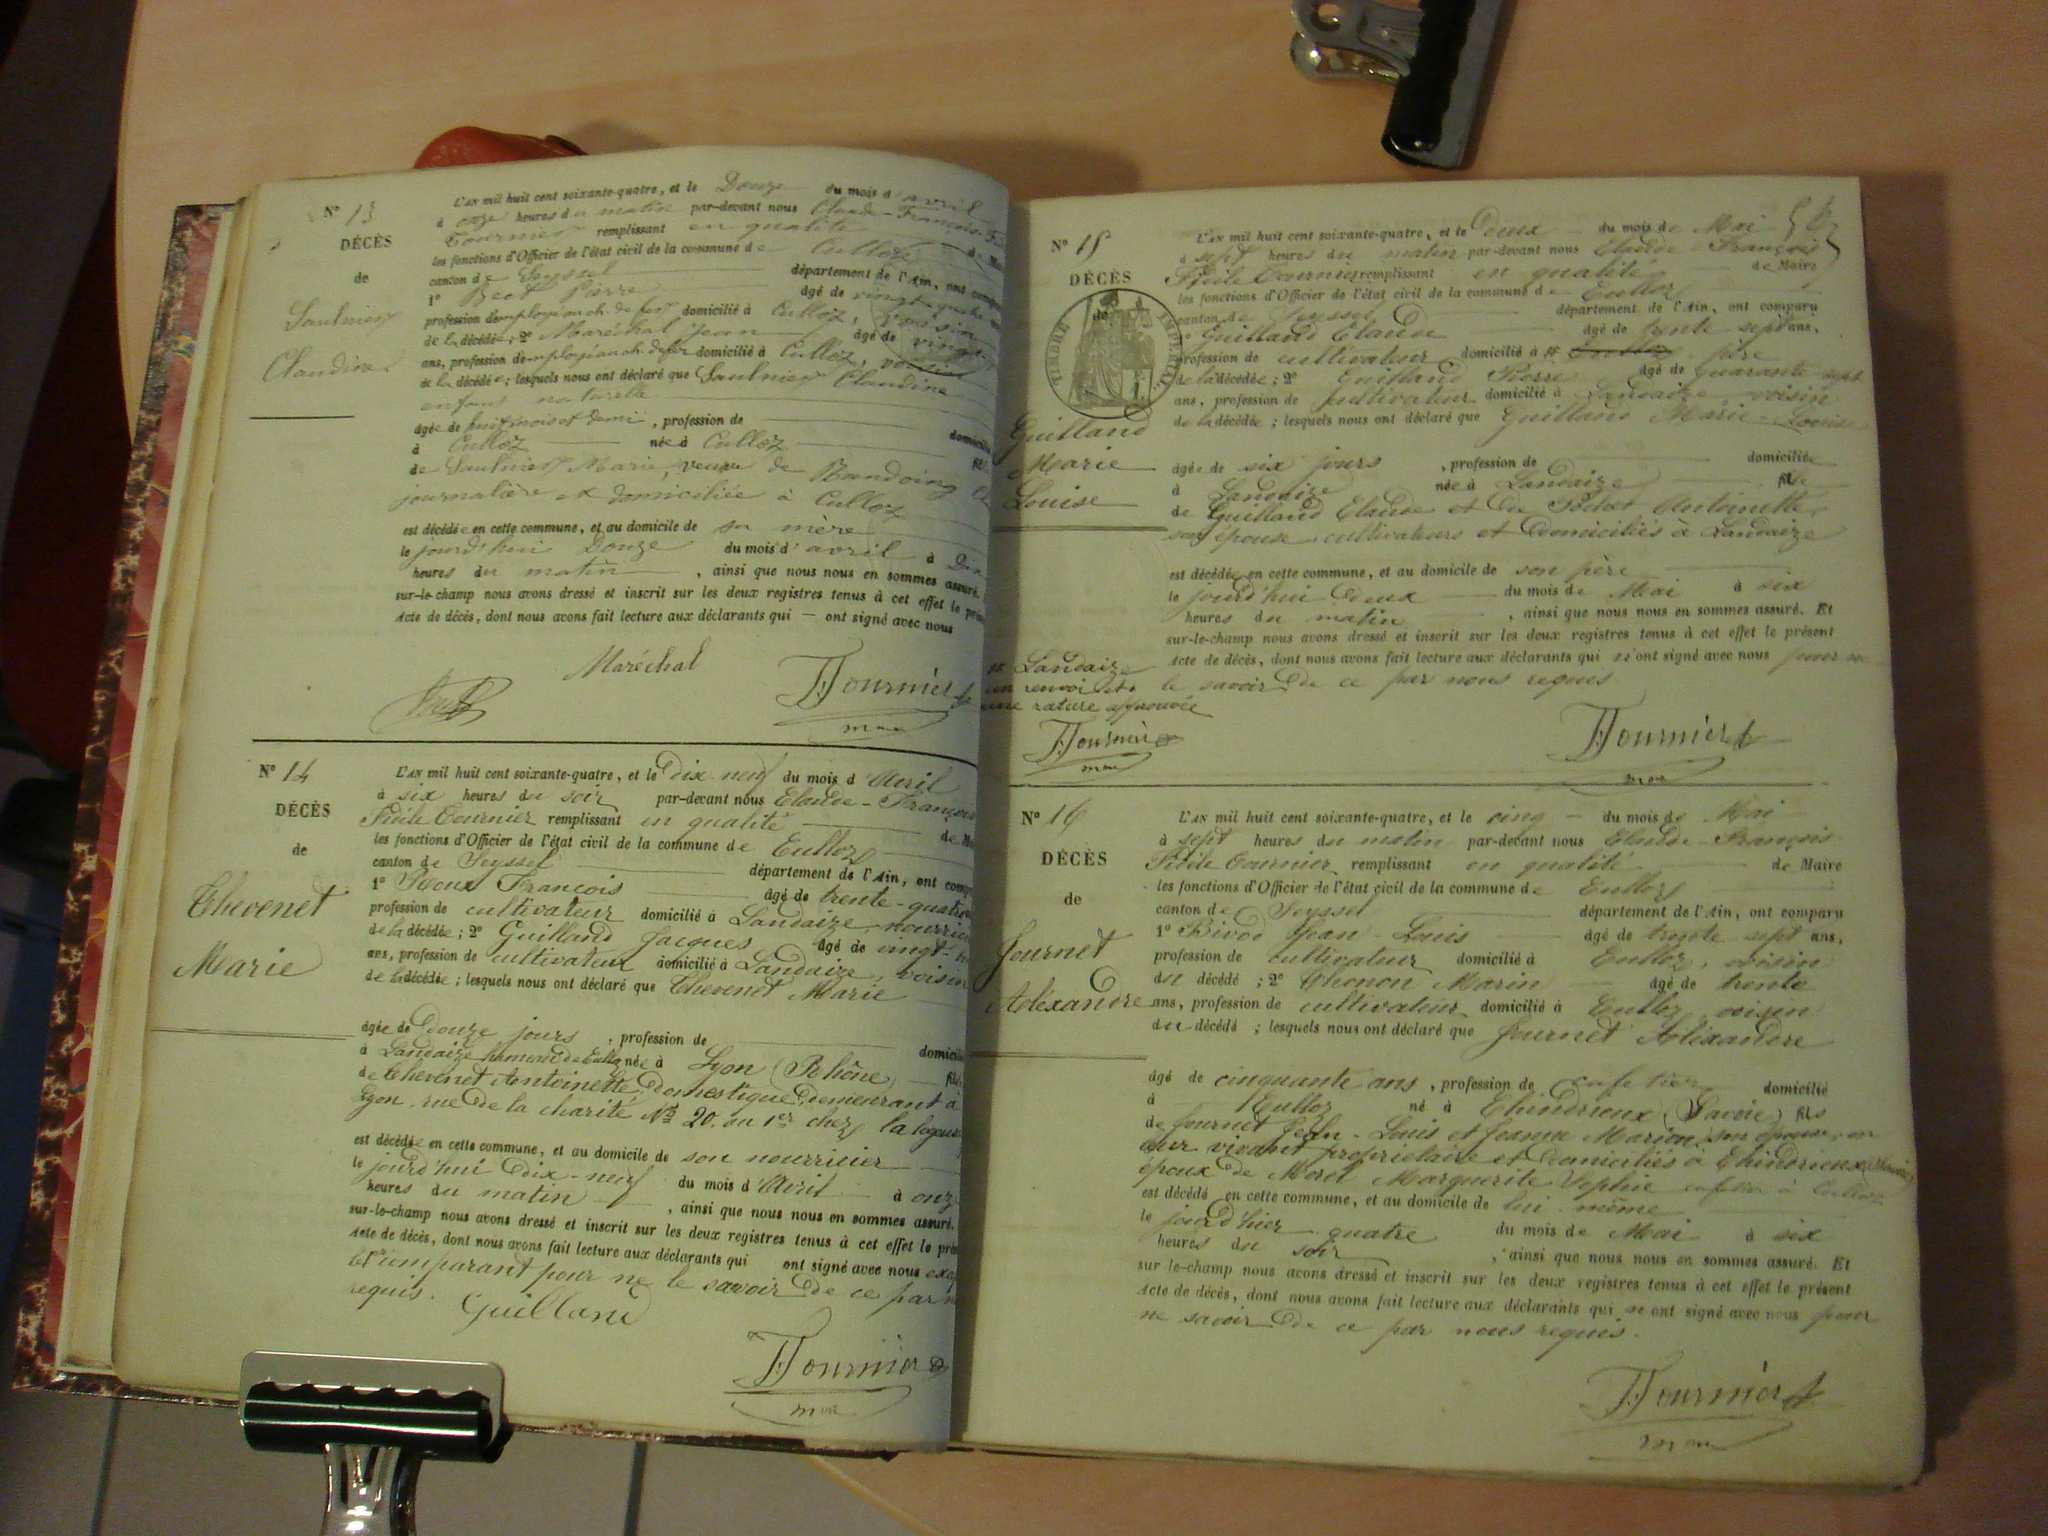 N° 13
DÉCÈS
de
Saulnier
Claudine
L'AN mil huit cent soixante-quatre, et le Douze du mois d'avril
à onze heures du matin par-devant nous Claude-François
Tournier remplissant en qualité de
les fonctions d'Officier de l'état civil de la commune de Culloz
canton de Seyssel département de l'Ain, ont
1° Bect Pierre âgé de vingt-quatre
profession d'employé au ch. de fer domicilié à Culloz, voisin
de la décédée; 2° Maréchal Jean âgé de vingt
ans, profession d'employé au ch. de fer domicilié à Culloz, voisin
de la décédée; lesquels nous ont déclaré que Saulnier Claudine
enfant naturelle
âgée de huit mois et demi, profession de
à Culloz née à Culloz
de Saulnier Marie, veuve de
journalière et domiciliée à Culloz
est décédée en cette commune, et au domicile de sa mère
le jourd'hui Douze du mois d'avril à
heures du matin, ainsi que nous nous en sommes assuré.
sur-le-champ nous avons dressé et inscrit sur les deux registres tenus à cet effet le
Acte de décès, dont nous avons fait lecture aux déclarants qui — ont signé avec nous
Maréchal
FTournier
N° 14
DÉCÈS
de
Thevenet
Marie
L'AN mil huit cent soixante-quatre, et le Dix neuf du mois d'Avril
à six heures du soir par-devant nous Claude-François
Fidile Tournier remplissant en qualité de
les fonctions d'Officier de l'état civil de la commune de Culloz
canton de Seyssel département de l'Ain, ont
1° Roux François âgé de trente-quatre
profession de cultivateur domicilié à Landaize
de la décédée; 2° Guilland Jacques âgé de
ans, profession de cultivateur domicilié à Landaize, voisin
de la décédée; lesquels nous ont déclaré que Thevenet Marie
âgée de Douze jours, profession de
à Landaize hameau de Culloz née à Lyon (Rhône)
de Thevenet Antoinette, Domestique, demeurant à
Lyon, rue de la charité N° 20, au 1er chez
est décédée en cette commune, et au domicile de son nourricier
le jourd'hui dix-neuf du mois d'Avril à
heures du matin, ainsi que nous nous en sommes assuré.
sur-le-champ nous avons dressé et inscrit sur les deux registres tenus à cet effet le
Acte de décès, dont nous avons fait lecture aux déclarants qui ont signé avec nous
pour ne le savoir de ce par
requis.
Guilland
FTournier
N° 15
DÉCÈS
de
TIMBRE IMPÉRIAL
Guilland
Marie
Louise
L'AN mil huit cent soixante-quatre, et le Deux du mois de Mai
à sept heures du matin par-devant nous Claude-François
Fidile Tournier remplissant en qualité de Maire
les fonctions d'Officier de l'état civil de la commune de Culloz
canton de Seyssel département de l'Ain, ont comparu
1° Guilland Claude âgé de trente sept ans,
profession de cultivateur domicilié à Culloz père
de la décédée; 2° Guilland Pierre âgé de quarante sept
ans, profession de cultivateur domicilié à Landaize, voisin
de la décédée; lesquels nous ont déclaré que Guilland Marie-Louise
âgée de six jours, profession de domiciliée
à Landaize née à Landaize fille
de Guilland Claude et de Antoinette
son épouse, cultivateurs et Domiciliés à Landaize
est décédée en cette commune, et au domicile de son père
le jourd'hui deux du mois de Mai à six
heures du matin, ainsi que nous nous en sommes assuré. Et
sur-le-champ nous avons dressé et inscrit sur les deux registres tenus à cet effet le présent
Acte de décès, dont nous avons fait lecture aux déclarants qui n'ont signé avec nous pour ne
le savoir de ce par nous requis
Landaize
un renvoi et
une rature approuvée
FTournier
FTournier
N° 16
DÉCÈS
de
Journet
Aléxandre
L'AN mil huit cent soixante-quatre, et le cinq du mois de Mai
à sept heures du matin par-devant nous Claude-François
Fidile Tournier remplissant en qualité de Maire
les fonctions d'Officier de l'état civil de la commune de Culloz
canton de Seyssel département de l'Ain, ont comparu
1° Jean-Louis âgé de trente sept ans,
profession de cultivateur domicilié à Culloz, voisin
du décédé; 2° Thonon Marin âgé de trente
ans, profession de cultivateur domicilié à Culloz, voisin
du décédé; lesquels nous ont déclaré que Journet Aléxandre
âgé de cinquante ans, profession de cafetier domicilié
à Culloz né à Chindrieux (Savoie) fils
de Journet Jean-Louis et Jeanne Marion son épouse, en
leur vivant propriétaire et Domiciliés à Chindrieux,
époux de Morel Marguerite Sophie à Culloz
est décédé en cette commune, et au domicile de lui même
le jourd'hier quatre du mois de Mai à six
heures du soir, ainsi que nous nous en sommes assuré. Et
sur-le-champ nous avons dressé et inscrit sur les deux registres tenus à cet effet le présent
Acte de décès, dont nous avons fait lecture aux déclarants qui ne ont signé avec nous pour
ne savoir de ce par nous requis.
FTournier